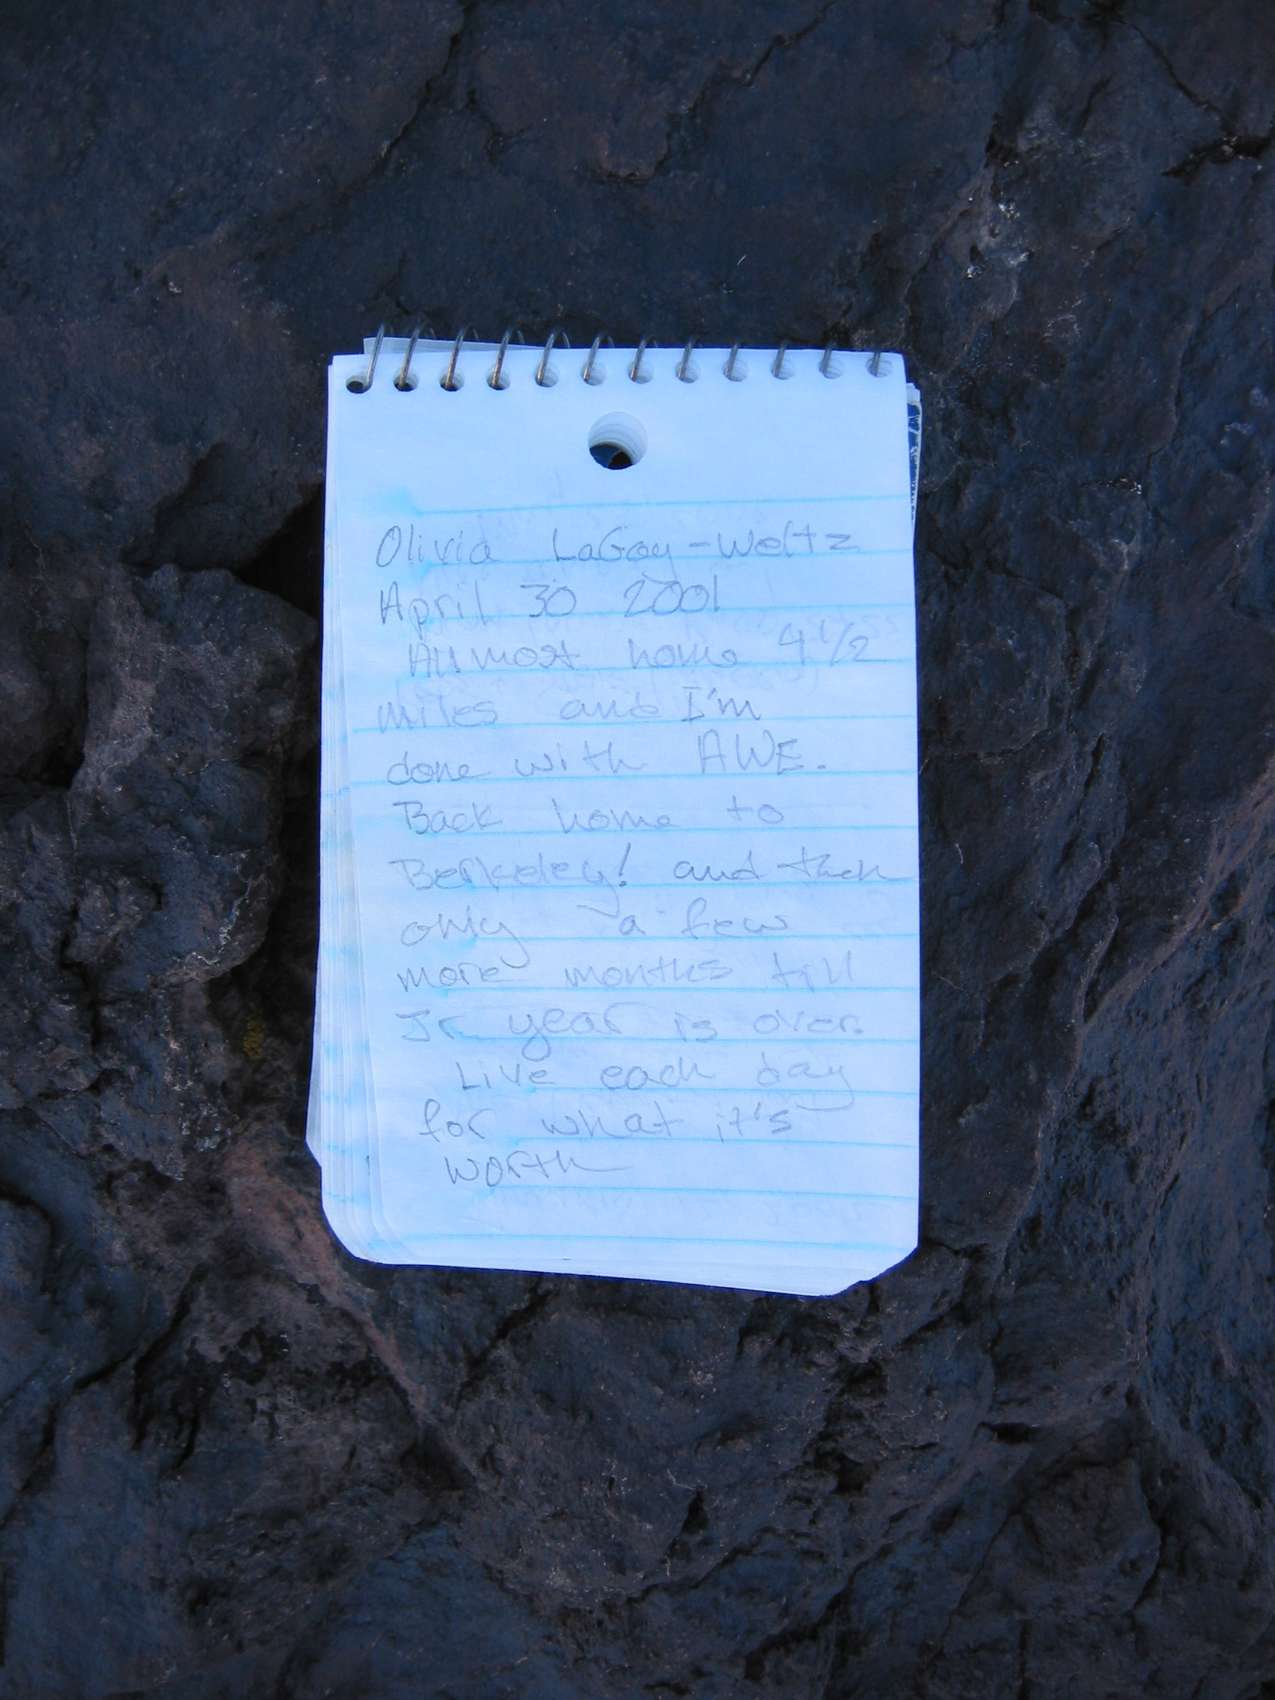 Olivia LaGoy-Weltz
April 30 2001
Allmost home 4 1/2
miles and I'm
done with AWE.
Back home to
Berkeley! and then
only a few
more months till
Jr year is over.
Live each day
for what it's
worth